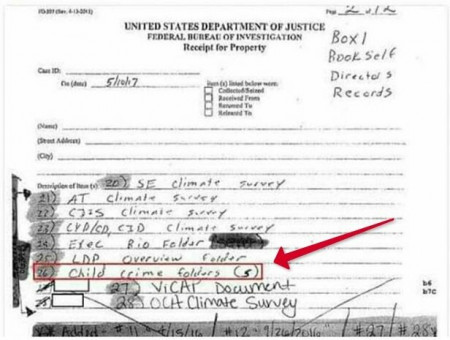 FD-597 (Rev. 4-13-2015)
Page 2 of 2
UNITED STATES DEPARTMENT OF JUSTICE
FEDERAL BUREAU OF INVESTIGATION
Receipt for Property
Box 1
Book Self
Directors
Records
Case ID:
On (date) 5/10/17
item(s) listed below were:
Collected/Seized
Received From
Returned To
Released To
(Name)
(Street Address)
(City)
Description of Item(s): 20) SE Climate Survey
21) AT Climate Survey
22) CJIS Climate Survey
23) CYD/CD, CID Climate Survey
24) Exec Bio Folder
25) LDP Overview Folder
26) Child crime folders (5)
27) ViCAP Document
28) OCA Climate Survey
b6
b7C
#11 #12 - 9/26/2016 #27 #28